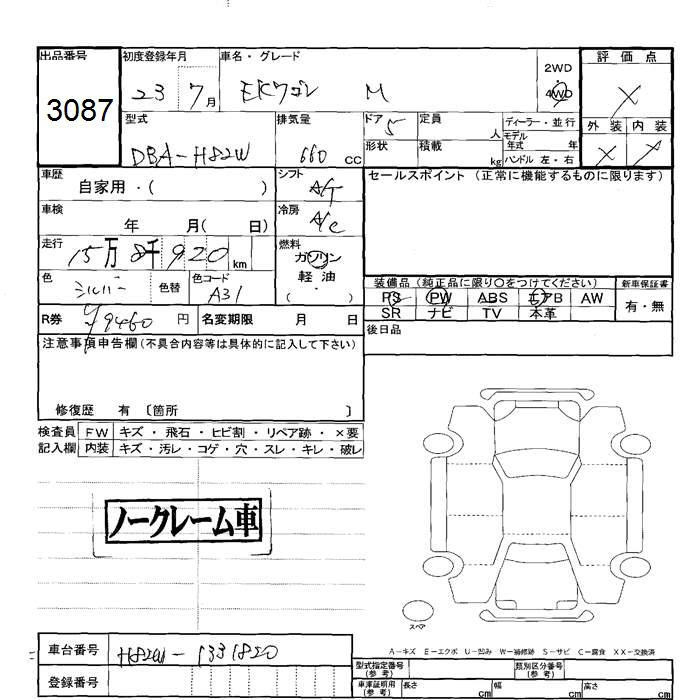 出品番号 初度登録年月 車名・グレード 2WD 評価点
3087 23 7月 EKワゴン M 4WD X
型式 排気量 ドア 5 定員 人 ディーラー・並行 外装 内装
DBA-H82W 660 CC 形状 積載 kg モデル年式 年 X X
ハンドル 左・右
車歴 自家用・( ) シフト A/T セールスポイント(正常に機能するものに限ります)
車検 年 月( 日) 冷房 A/C
走行 15万8千920km 燃料 ガソリン
軽油
( ・ )
色 シルバー 色替 色コード A31 装備品(純正品に限り○をつけてください) 新車保証書
PS PW ABS エアB AW 有・無
R券 ¥9460円 名変期限 月 日 SR ナビ TV 本革
注意事項申告欄(不具合内容等は具体的に記入して下さい) 後日品
修復歴 有 〔箇所 〕
検査員 FW キズ・飛石・ヒビ割・リペア跡・×要
記入欄 内装 キズ・汚レ・コゲ・穴・スレ・キレ・破レ
ノークレーム車
スペア
A-キズ E-エクボ U-凹み W-補修跡 S-サビ C-腐食 XX-交換済
車台番号 H82W-1331820 型式指定番号(参考) 類別区分番号(参考)
登録番号 車庫証明用(参考) 長さ cm 幅 cm 高さ cm